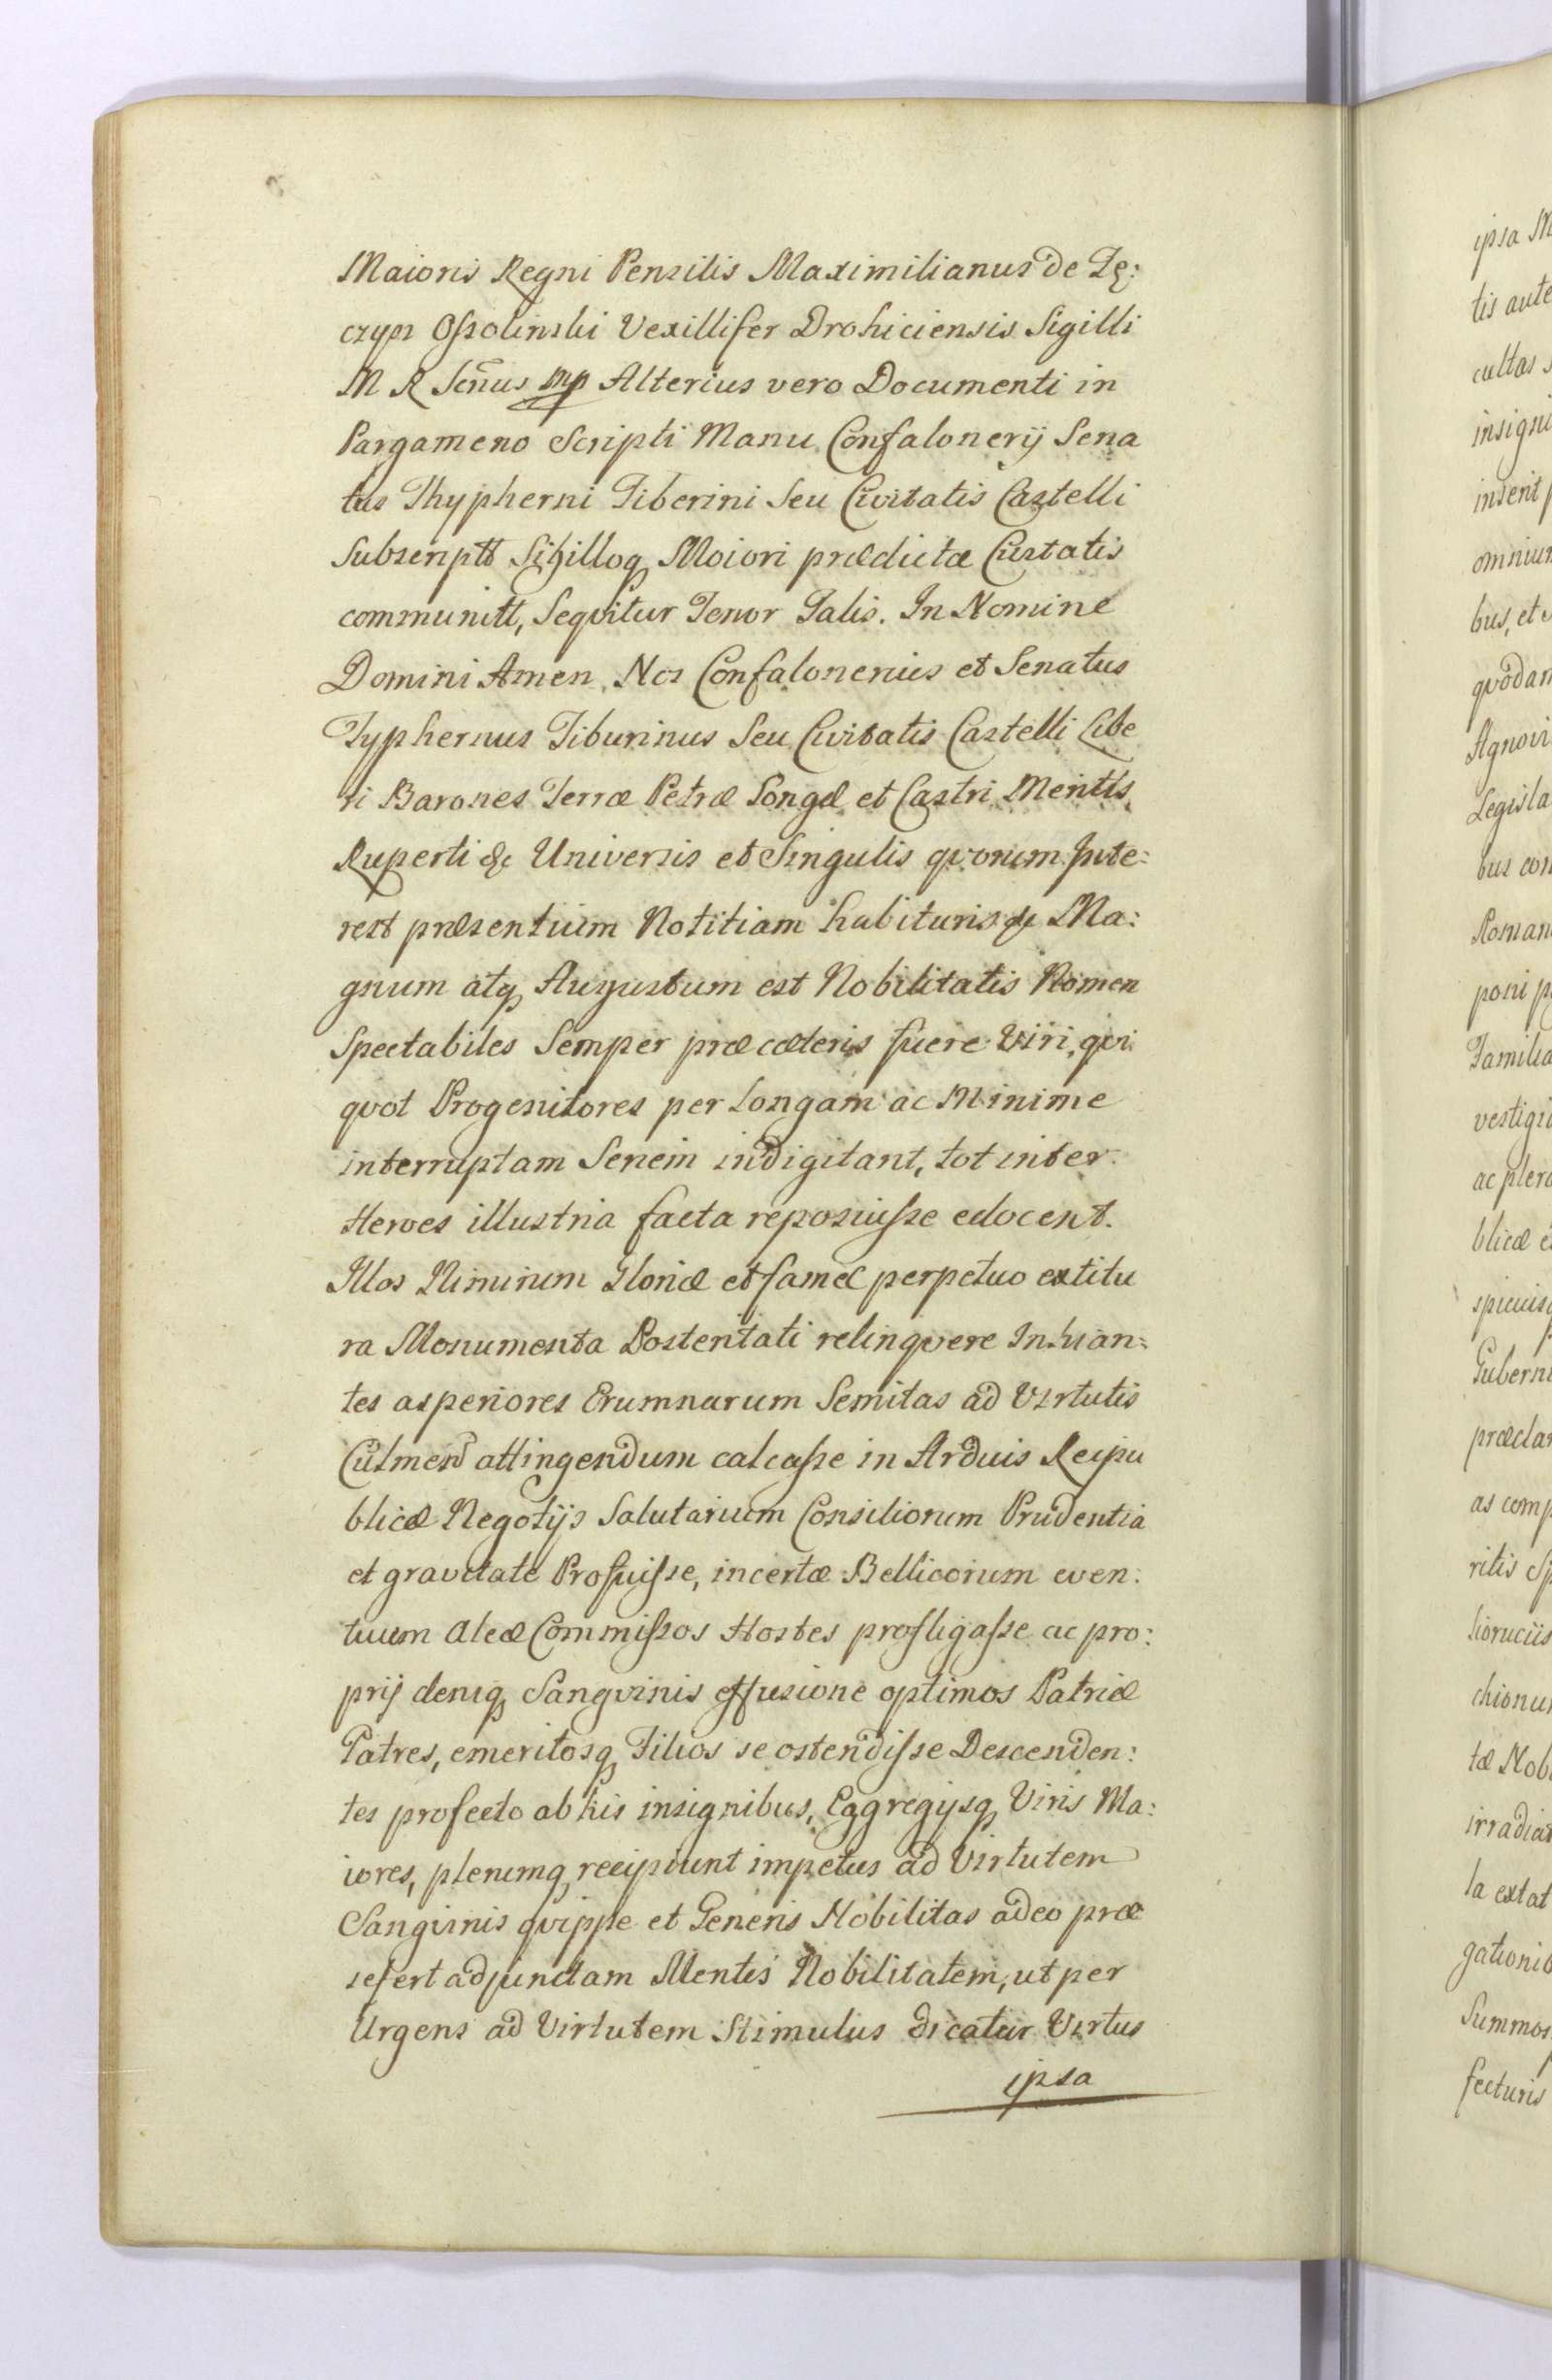 Maioris Regni Pensilis Maximilianus de Tę:
czyn Ossolinski Vexillifer Drohiciensis Sigilli
M R Scñus mp Alterius vero Documenti in
Pargameno Scripti Manu Confalonerij Sena
tus Thypherni Tiberini Seu Civitatis Castelli
Subscriptt Sigilloq Moiori prædictæ Ciutatis
communitt, Seqvitur Tenor Talis. In Nomine
Domini Amen. Nos Confalonerius et Senatus
Typhernus Tiburinus Seu Civitatis Castelli Libe
ri Barones Terræ Petræ Longæ et Castri Mentis
Ruperti &c Universis et Singulis qvorum Inte:
rest præsentium Notitiam habituris & Ma:
gnum atq Augustum est Nobilitatis Nomen
Spectabiles Semper præ cæteris fuere Viri, qvi
qvot Progenitores per Longam ac Minime
interruptam Seriem indigitant, tot inter
Heroes illustria facta reposuisse edocent.
Illos Nimirum Gloriæ et famæ perpetuo extitu
ra Monumenta Posteritati relinqvere Inhian:
tes asperiores Erumnarum Semitas ad Virtutis
Culmen attingendum calcasse in Arduis Reipu
blicæ Negotijs Salutarium Consiliorum Prudentia
et gravitate Profuisse, incertæ Bellicorum even:
tuum Aleæ Commissos Hostes profligasse ac pro:
prij deniq Sangvinis effusione optimos Patriæ
Patres, emeritosq Filios se ostendisse Descenden:
tes profecto ab his insignibus, Eggregijsq Viris Ma:
iores, plerumq recipiunt impetus ad Virtutem
Sangvinis qvippe et Generis Nobilitas adeo præ
sefert adjunctam Mentis Nobilitatem, ut per
Urgens ad Virtutem Stimulus dicatur Virtus
ipsa
ipsa
tis aute
cultas
insigni
inserit
omnium
bus, et
qvodam
Agnovi
Legisla
bus con
Roman
poni
Familia
vestigi
ac plero
blicæ
spicuisq
Guberni
præclar
as comp
ritis
chionu
tæ Nob
irradia
la extat
gationib
Summos
fecturis